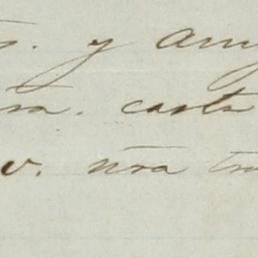 s. y am
ra. carta
v. nra tra